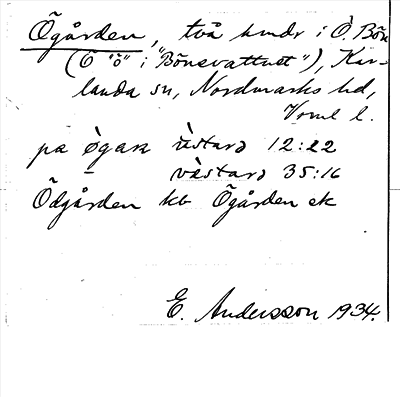 Ögården, två hmdr i Ö. Bön
(Ö "ö" i "Bönsvattnet"), Kar-
landa sn, Nordmarks hd,
Verml l.
pa øgaɳ västarɔ 12:22
– västarɔ 35:16
Ödgården kb Ögården ek
E. Andersson 1934.